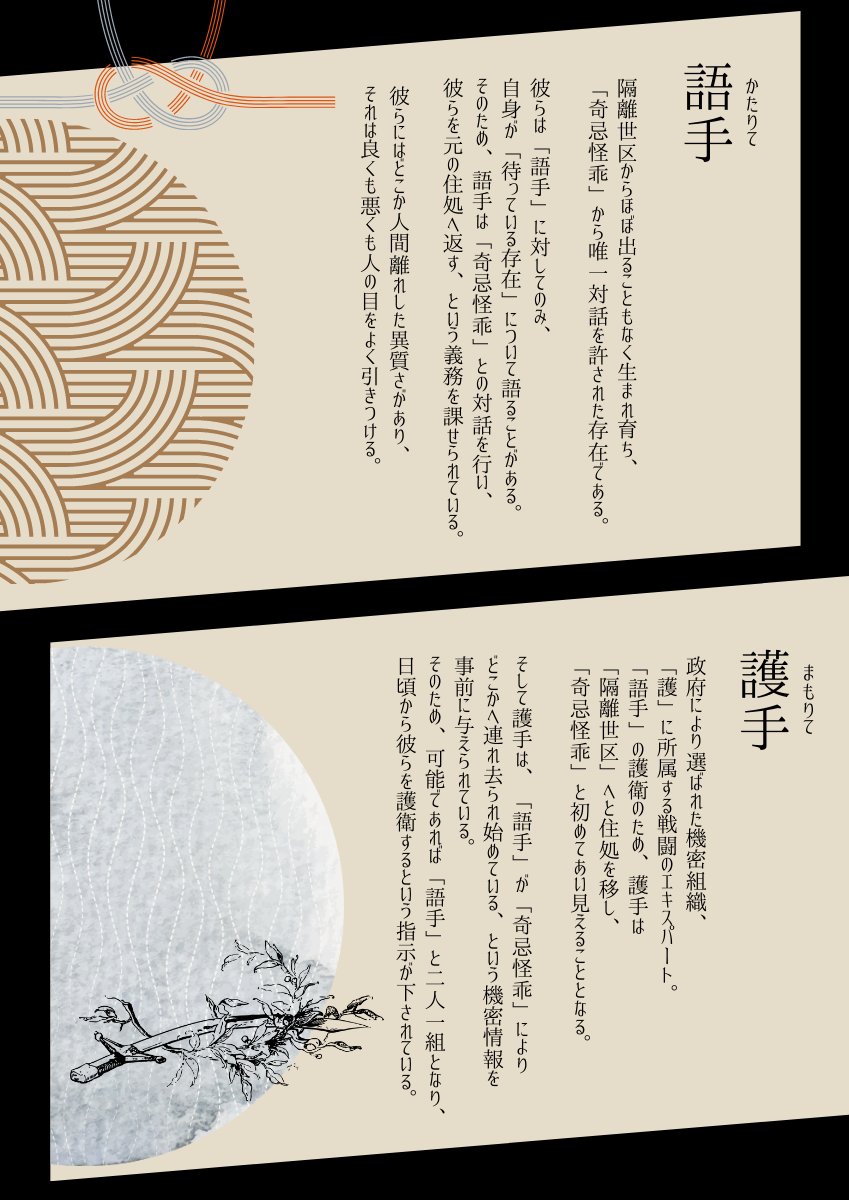 かたりて
語手
隔離世区からほぼ出ることもなく生まれ育ち、
「奇忌怪乖」から唯一対話を許された存在である。
彼らは「語手」に対してのみ、
自身が「待っている存在」について語ることがある。
そのため、語手は「奇忌怪乖」との対話を行い、
彼らを元の住処へ返す、という義務を課せられている。
彼らにはどこか人間離れした異質さがあり、
それは良くも悪くも人の目をよく引きつける。
まもりて
護手
政府により選ばれた機密組織、
「護」に所属する戦闘のエキスパート。
「語手」の護衛のため、護手は
「隔離世区」へと住処を移し、
「奇忌怪乖」と初めてあい見えることとなる。
そして護手は、「語手」が「奇忌怪乖」により
どこかへ連れ去られ始めている、という機密情報を
事前に与えられている。
そのため、可能であれば「語手」と二人一組となり、
日頃から彼らを護衛するという指示が下されている。